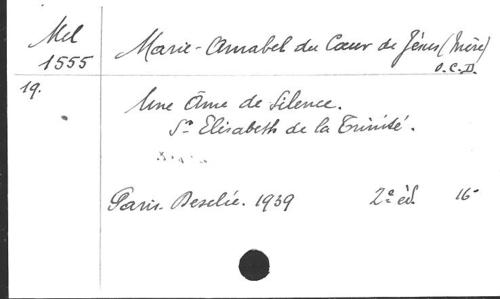 Mel
1555
Marie-Amabel du Cœur de Jésus (Mère)
O.C.D.
19.
Une Âme de Silence.
Sr Elisabeth de la Trinité.
Paris. Desclée. 1939 2e éd. 16-